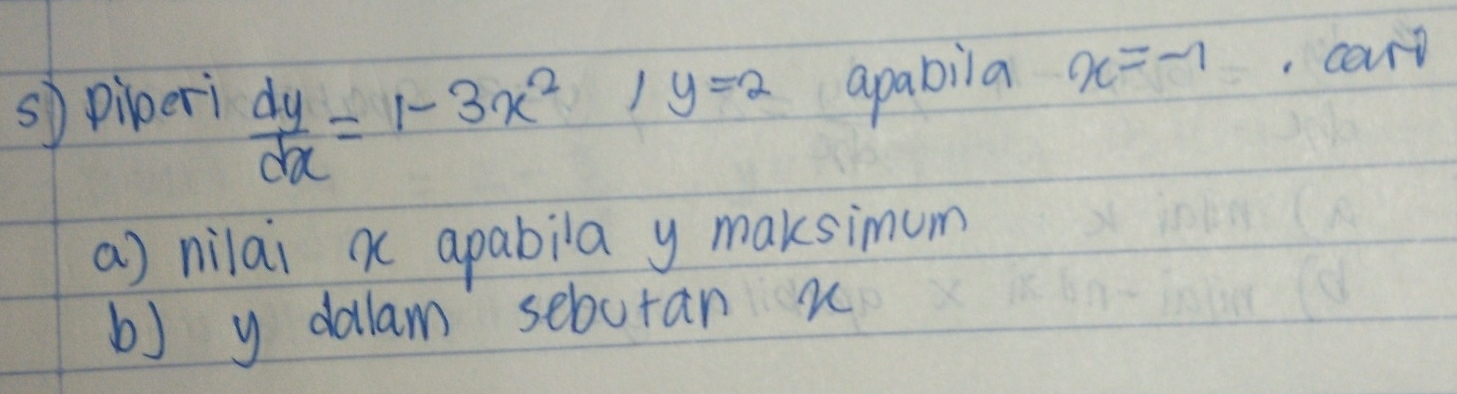 5) Diberi dy/dx = 1 - 3x² , y = 2 apabila x = -1 . cari
a) nilai x apabila y maksimum
b) y dalam sebutan x